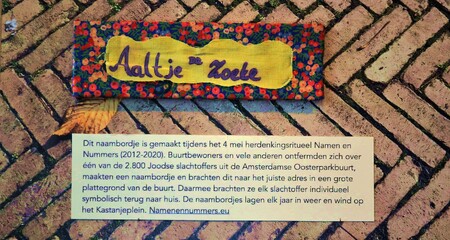 Aaltje de Zoete
Dit naambordje is gemaakt tijdens het 4 mei herdenkingsritueel Namen en
Nummers (2012-2020). Buurtbewoners en vele anderen ontfermden zich over
één van de 2.800 Joodse slachtoffers uit de Amsterdamse Oosterparkbuurt,
maakten een naambordje en brachten dit naar het juiste adres in een grote
plattegrond van de buurt. Daarmee brachten ze elk slachtoffer individueel
symbolisch terug naar huis. De naambordjes lagen elk jaar in weer en wind op
het Kastanjeplein. Namenennummers.eu